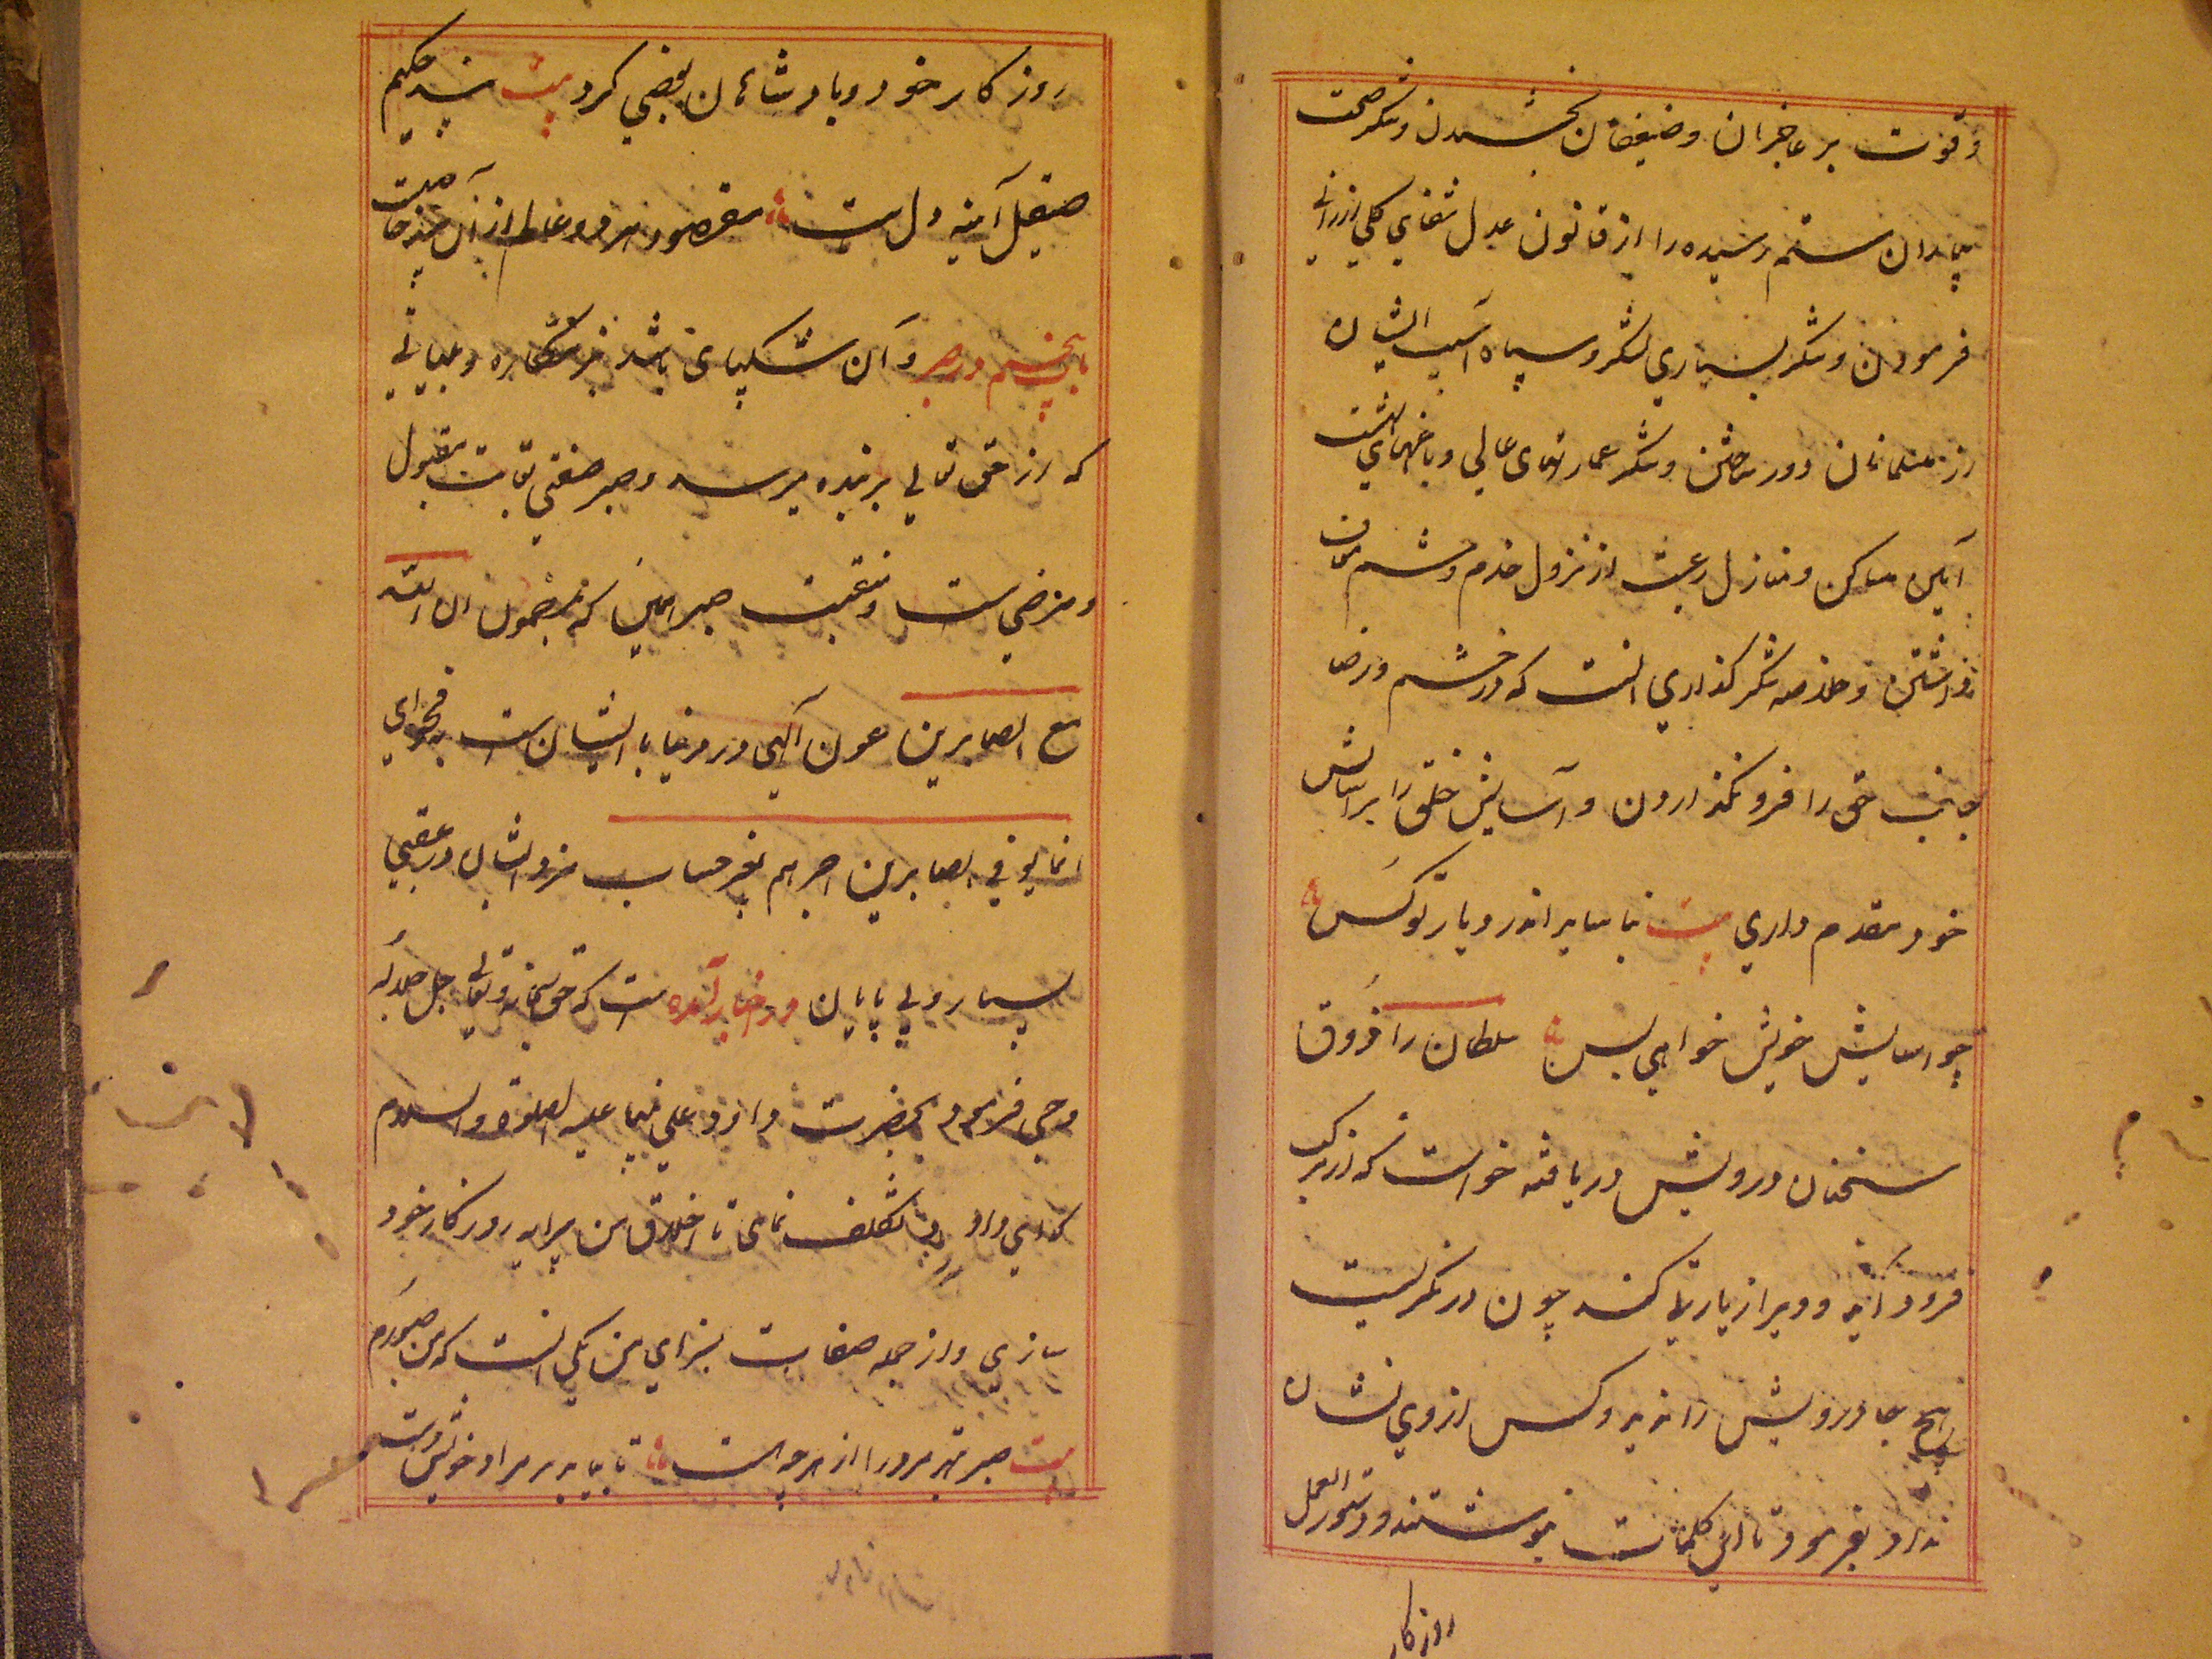 و قوت بر عاجزان و ضعیفان بخشیدن و شکر صحت
بیماران ستم رسیده را از قانون عدل شفای کلی ارزانی
فرمودن و شکر بسیاری لشکر و سپاه آسیب ایشان
از مسلمانان دور ساختن و شکر عمارتهای عالی و باغهای بهشت
آیین مساکن و منازل رعیت از نزول خدم و حشم معاف
داشتن و خلاصه شکر گذاری آنست که در خشم و رضا
جانب حق را فرو نگذاردن و آسایش خلق را بر آسایش
خود مقدم داری بیت نیاساید اندر دیار تو کس
چو آسایش خویش خواهی بس سلطان را ذوق
سخنان درویش دریافته خواست که از مرکب
فرود آید و ویرا زیارت کند چون در نگریست
هیچ جا درویش را ندید و کس از وی نشان
نداد بفرمود تا این کلمات نوشتند و دستور العمل
روزکار
روزکار خود و پادشاهان بعضی کرد بیت پند حکیم
صیقل آینه دل است مقصود هر دو عالم از آن پند حاصلست
باب پنجم در صبر و آن شکیبائی باشد بر مکاره و بلیاتی
که از حق تعالی بر بنده میرسد و صبر صفتی بغایت مقبول
و مرضی است و منقبت صبر همین که بمضمون ان الله
مع الصابرین عون آلهی در دنیا با ایشان ست بفحوای
انما یوفی الصابرین اجرهم بغیر حساب مزد ایشان در عقبی
بسیار و بی پایان در اخبار آمده است که حق سبحانه و تعالی جل جلاله
وحی فرمود بحضرت داود علی نبینا علیه الصلوة والسلام
که ای داود تکلف نمای تا اخلاق من پیرایه روزکار خود
سازی و از جمله صفات بسزای من یکی آنست که من صبورم
بیت صبر بهتر مرد را از هر چه هست تا بیابد بر مراد خویش دست